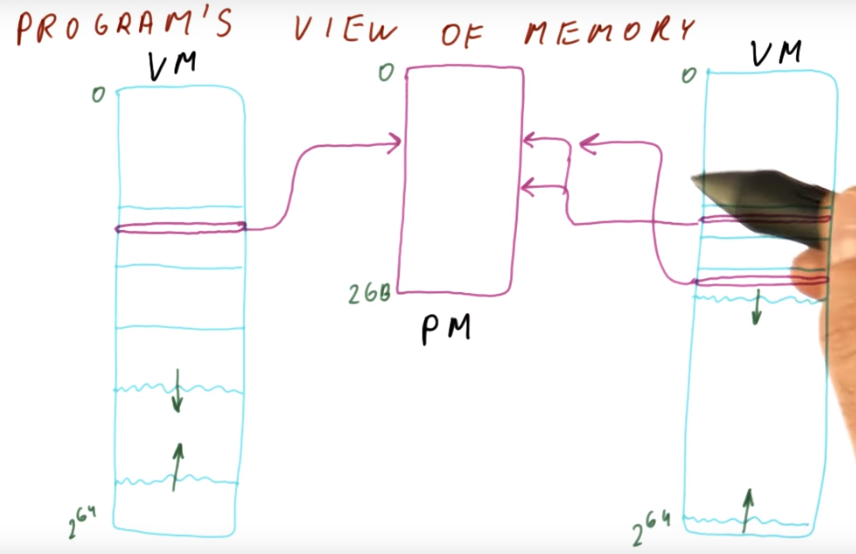 PROGRAM'S VIEW OF MEMORY
VM
VM
0
0
0
2GB
PM
2^64
2^64